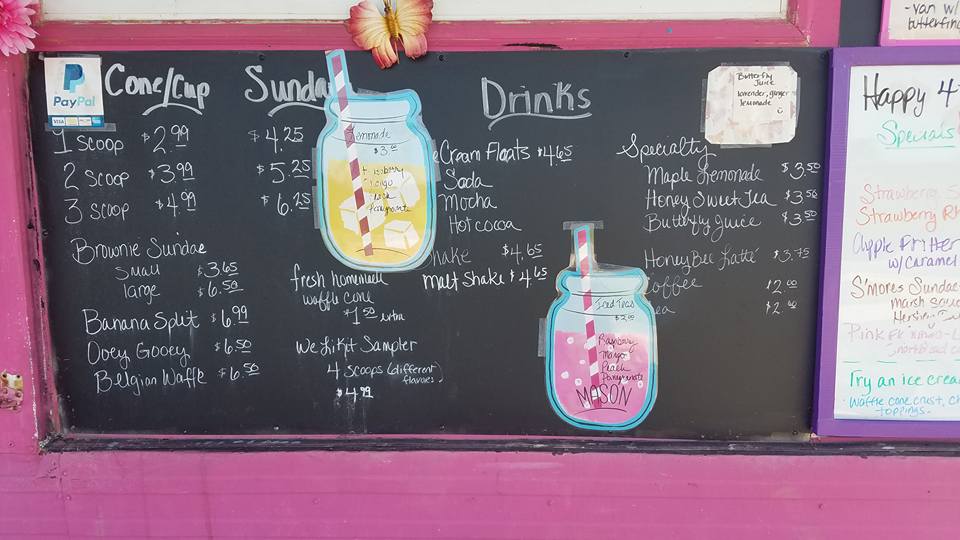 PayPal
Cone/Cup
1 scoop $2.99
2 scoop $3.99
3 scoop $4.99
Sunda
$4.25
$5.25
$6.25
Brownie Sundae
Small $3.65
large $6.50
Banana Split $6.99
Ooey Gooey $6.50
Belgian Waffle $6.50
fresh homemade
waffle cone
$1.50 extra
We Lik it Sampler
4 scoops (different
flavors)
$4.99
Lemonade
Mango
Drinks
eCream Floats $4.65
Soda
Mocha
Hot cocoa
hake $4.65
malt Shake $4.65
Iced Teas
$2.00
Raspberry
Mango
Peach
Pomegranate
MASON
Butterfly
Juice
lavender, ginger
lemonade
Specialty
Maple Lemonade $3.50
Honey Sweet Tea $3.50
Butterfly Juice $3.50
Honey Bee Latté
offee $2.00
ea
-van w/
butterfing
Happy 4t
Specials
Strawberry S
Strawberry Rh
Apple Fritter
w/caramel
S'mores Sundae
marsh
Hershey
Pink
Try an ice crea
waffle cone crust, ch
toppings.